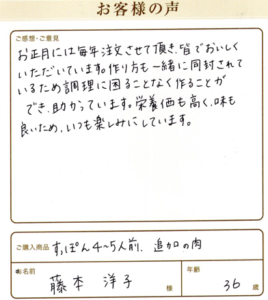 お客様の声
ご感想・ご意見
お正月には毎年注文させて頂き、皆でおいしく
いただいています。作り方も一緒に同封されて
いるため調理に困ることなく作ることが
でき、助かっています。栄養価も高く、味も
良いため、いつも楽しみにしています。
ご購入商品 すっぽん4〜5人前、追加の肉
お名前 藤本 洋子 様 年齢 36 歳